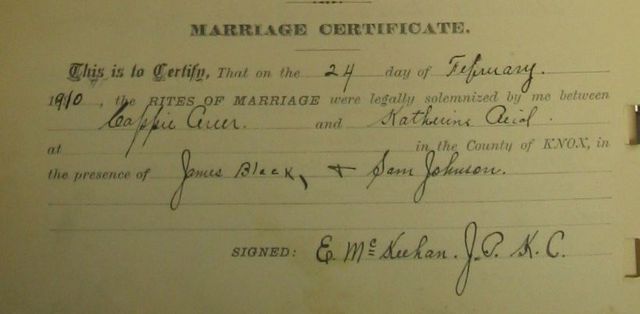 MARRIAGE CERTIFICATE.
This is to Certify, That on the 24 day of February.
1910, the RITES OF MARRIAGE were legally solemnized by me between
Cappie and Katherine
at in the County of KNOX, in
the presence of James Black, + Sam Johnson.
SIGNED: E. McKeehan. J.P. K.C.